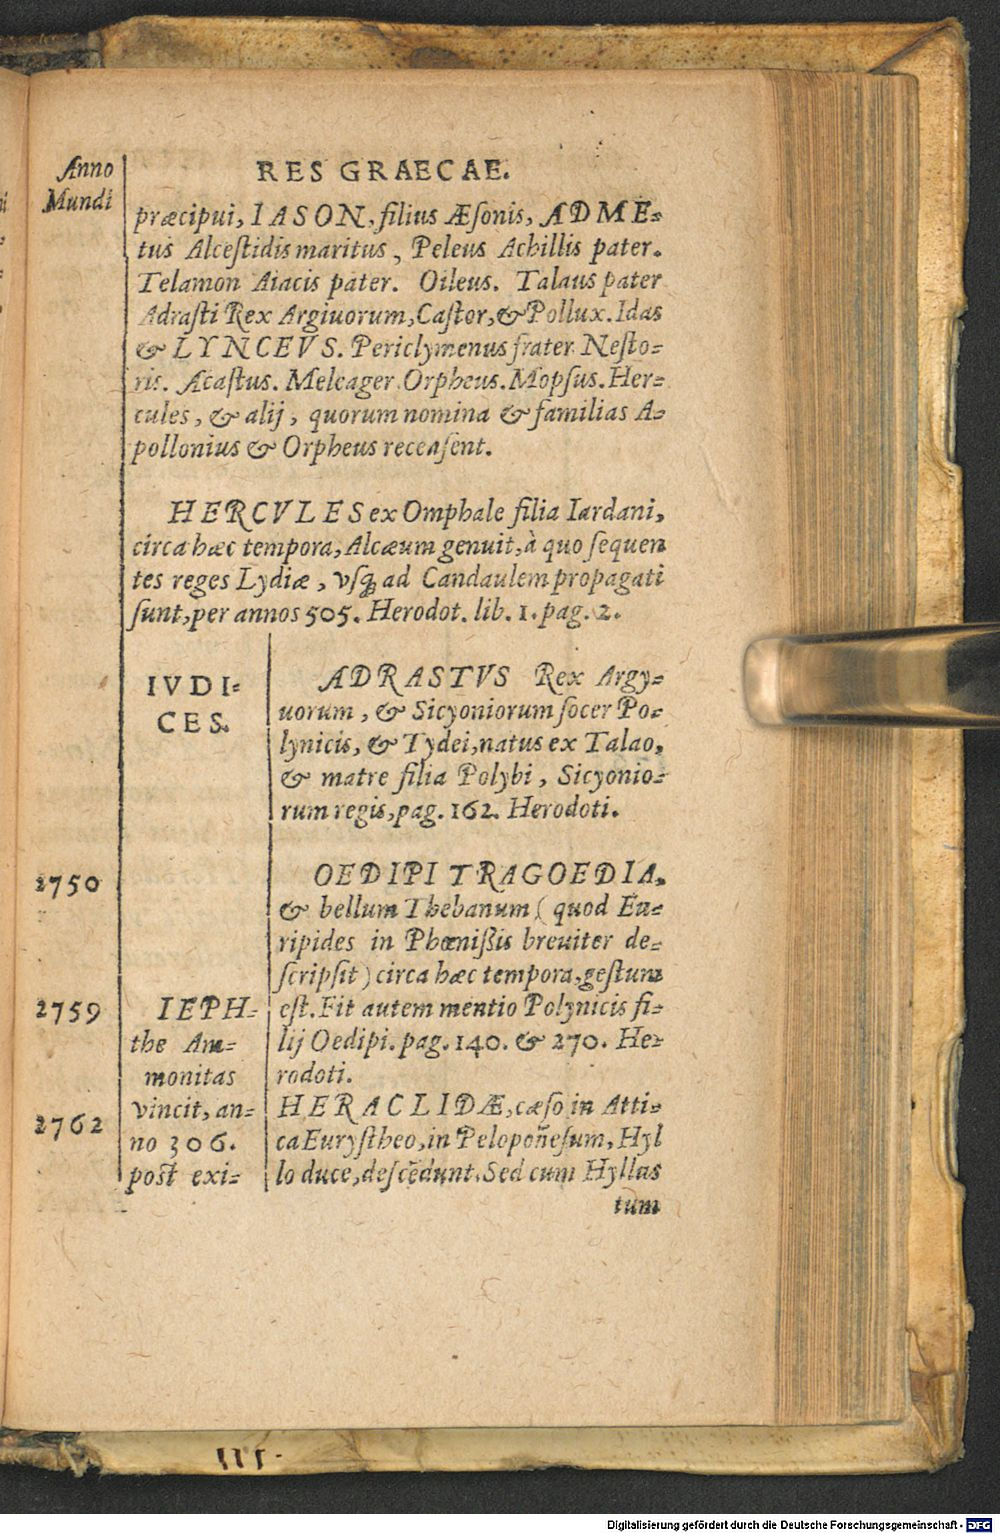 Anno
Mundi
RES GRAECAE.
præcipui, IASON, filius Æſonis, ADME-
tus Alceſtidis maritus, Peleus Achillis pater.
Telamon Aiacis pater. Oileus. Talaus pater
Adraſti Rex Argiuorum, Caſtor, & Pollux. Idas
& LYNCEVS. Periclymenus frater Neſto-
ris. Acaſtus. Meleager. Orpheus. Mopſus. Her-
cules, & alij, quorum nomina & familias A-
pollonius & Orpheus recenſent.
HERCVLES ex Omphale filia Iardani,
circa hæc tempora, Alcæum genuit, à quo ſequen
tes reges Lydiæ, vſq; ad Candaulem propagati
ſunt, per annos 505. Herodot. lib. 1. pag. 2.
IVDI-
CES.
ADRASTVS Rex Argy-
uorum, & Sicyoniorum ſocer Po-
lynicis, & Tydei, natus ex Talao,
& matre filia Polybi, Sicyonio-
rum regis, pag. 162. Herodoti.
2750
OEDIPI TRAGOEDIA,
& bellum Thebanum (quod Eu-
ripides in Phœnißis breuiter de-
ſcripſit) circa hæc tempora, geſtum
eſt. Fit autem mentio Polynicis fi-
lij Oedipi. pag. 140. & 270. He-
rodoti.
2759
IEPH-
the Am-
monitas
vincit, an-
no 306.
poſt exi-
2762
HERACLIDÆ, cæſo in Atti-
ca Euryſtheo, in Pelopoñeſum, Hyl
lo duce, deſcēdunt. Sed cum Hyllus
tum
Digitalisierung gefördert durch die Deutsche Forschungsgemeinschaft - DFG